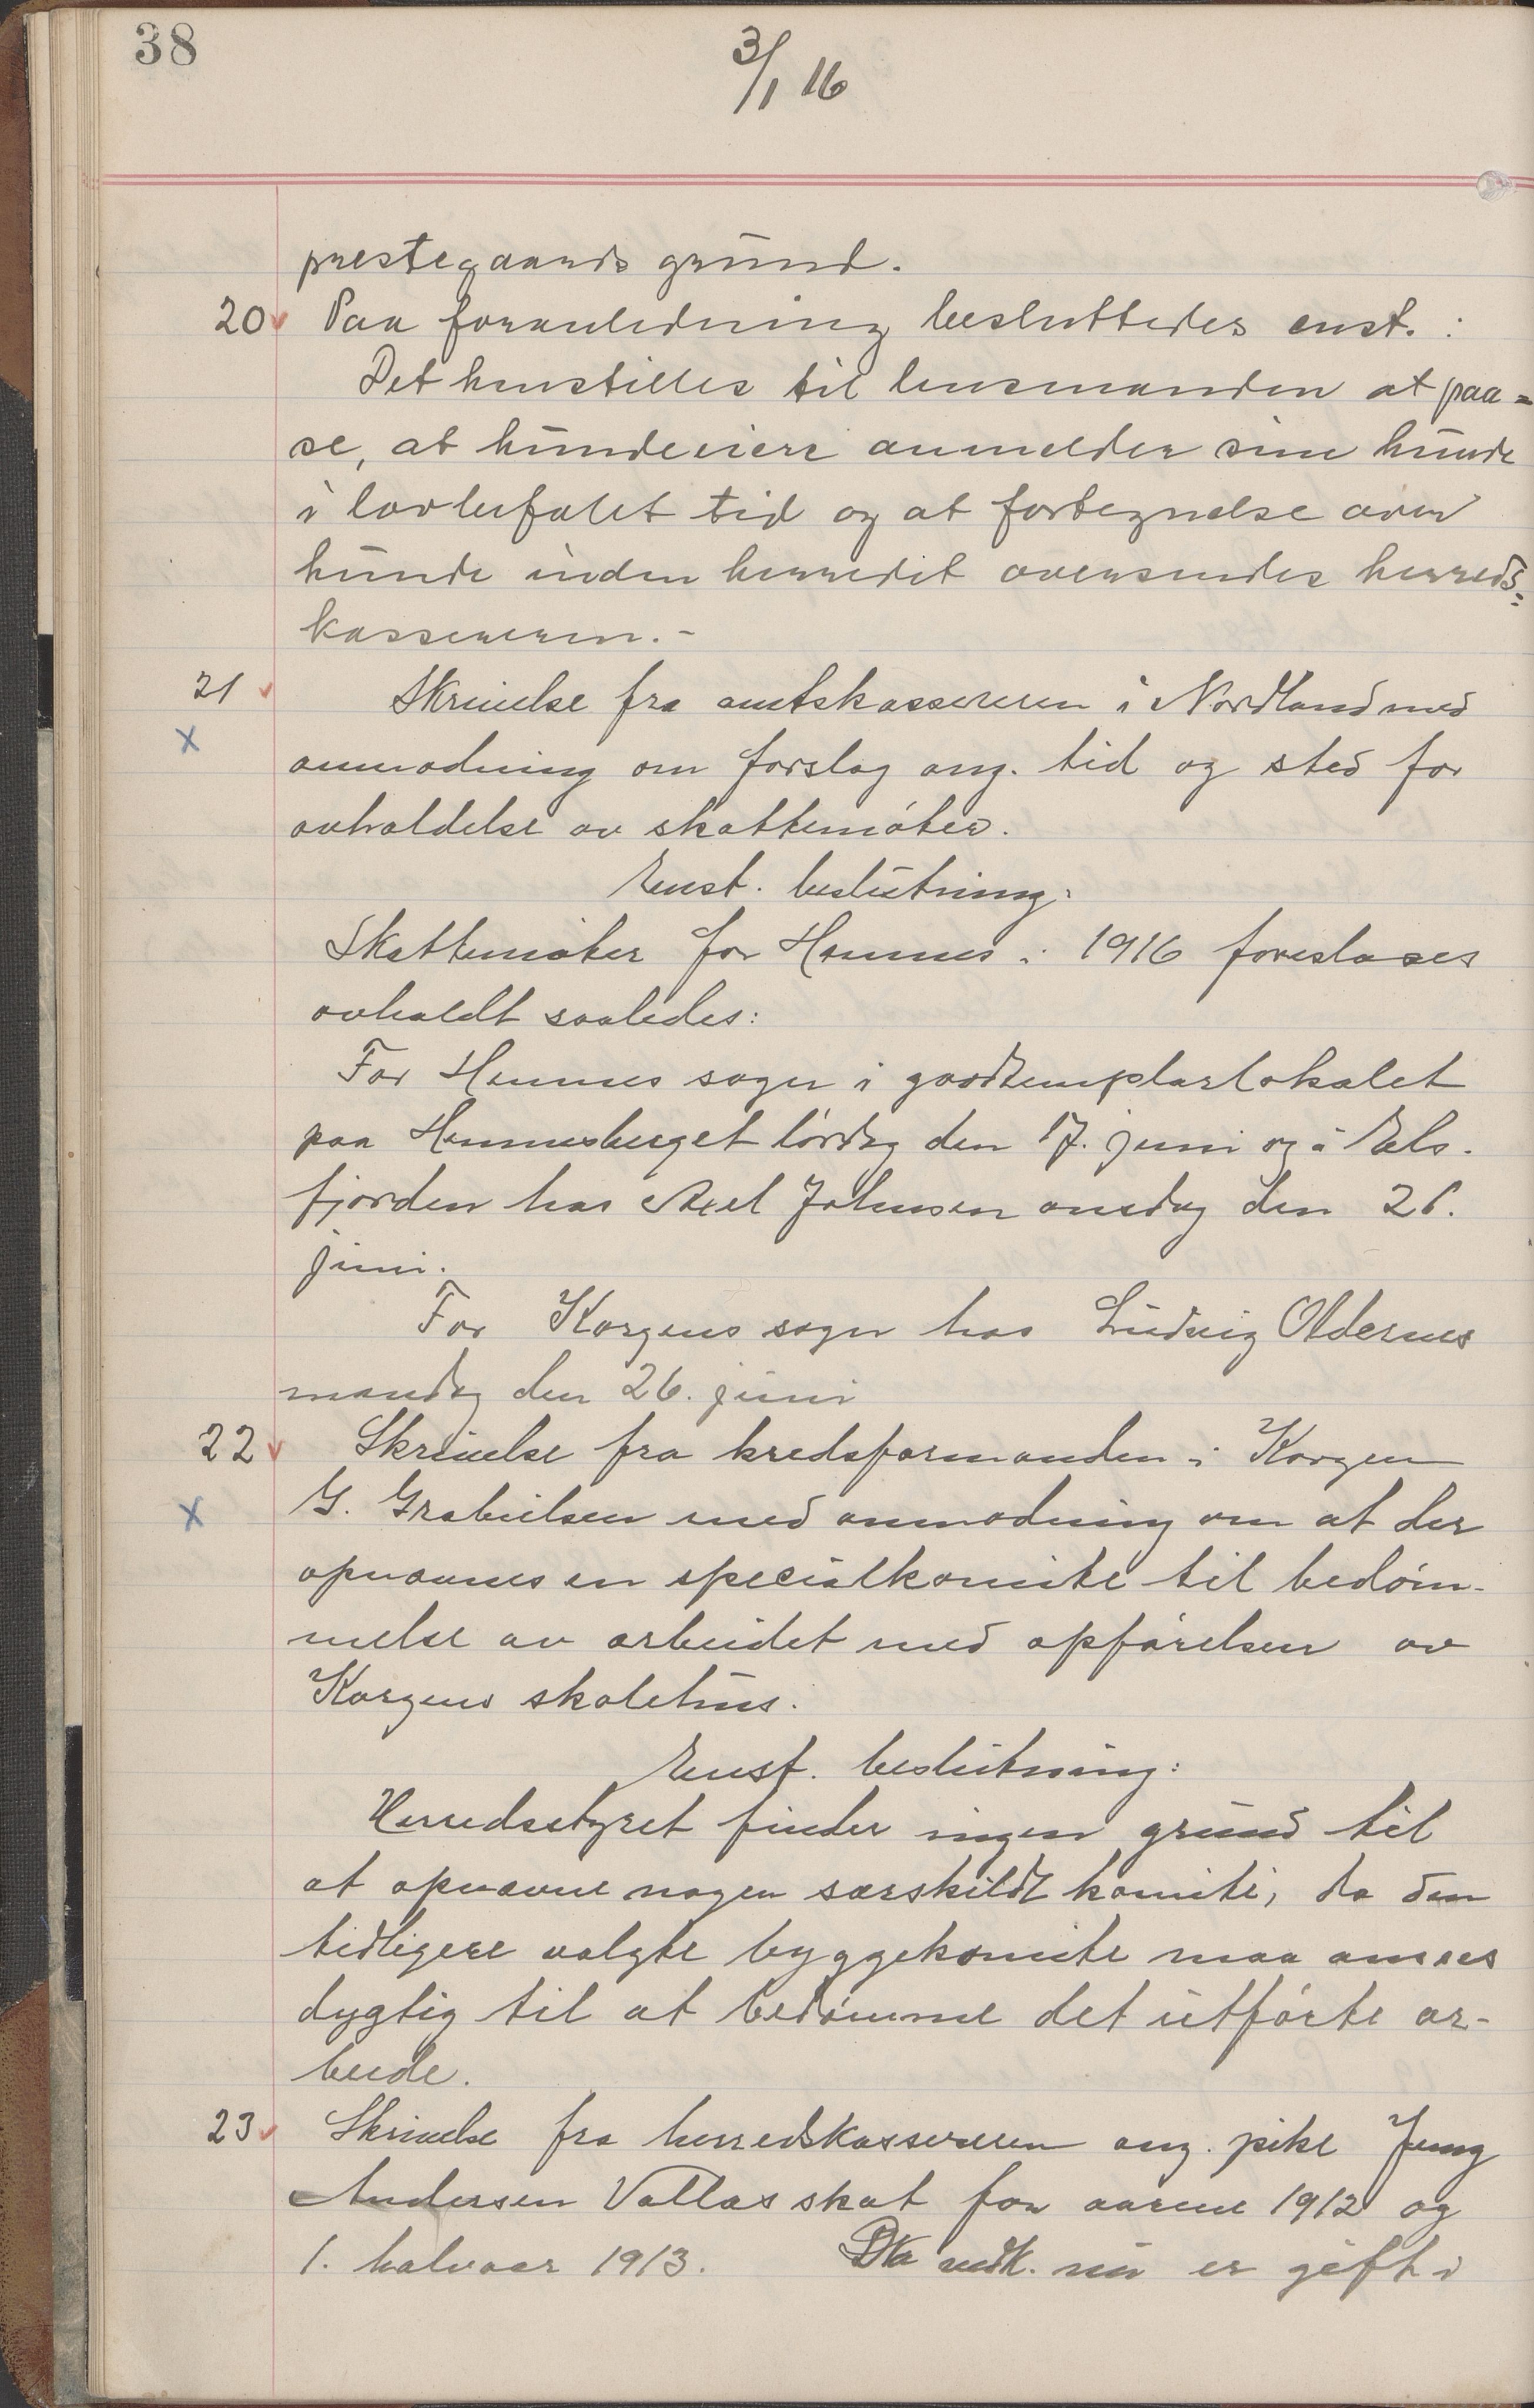 38
3/1 16
prestegaards grund.
20 Paa foranledning besluttedes enst. :
Det henstilles til lensmanden at paa=
se, at hundeeiere anmelder sine hunde
i lovbefalet tid og at fortegnelse over
hunde inden herredet oversendes herreds=
kassereren.-
21 Skrivelse fra amtskassereren i Nordland med
x
anmodning om forslag ang. tid og sted for
avholdelse av skattemøter.
Enst. beslutning:
Skattemøter for Hemnes i 1916 foreslaaes
avholdt saaledes:
For Hemnes sogn i goodtemplarlokalet
paa Hemnesberget lørdag den 17. juni og i Els-
fjorden hos Axel Johnsen onsdag den 21.
juni.
For Korgens sogn hos Ludvig Oldernes
mandag den 26. juni
22 Skrivelse fra kredsformanden i Korgen
x
G. Grabielsen med anmodning om at der
opnævnes en specialkomite til bedøm-
melse av arbeidet med opførelsen av
Korgens skolehus.
Enst. beslutning:
Herredsstyret finder ingen grund til
at opnævne nogen særskildt komite, da den
tidligere valgte byggekomite maa ansees
dygtig til at bedømme det utførte ar-
beide.
23 Skrivelse fra herredskassereren ang. pike Jenny
Andersen Vallas skat for aarene 1912 og
1. halvaar 1913. Da vedk. nu er gift i